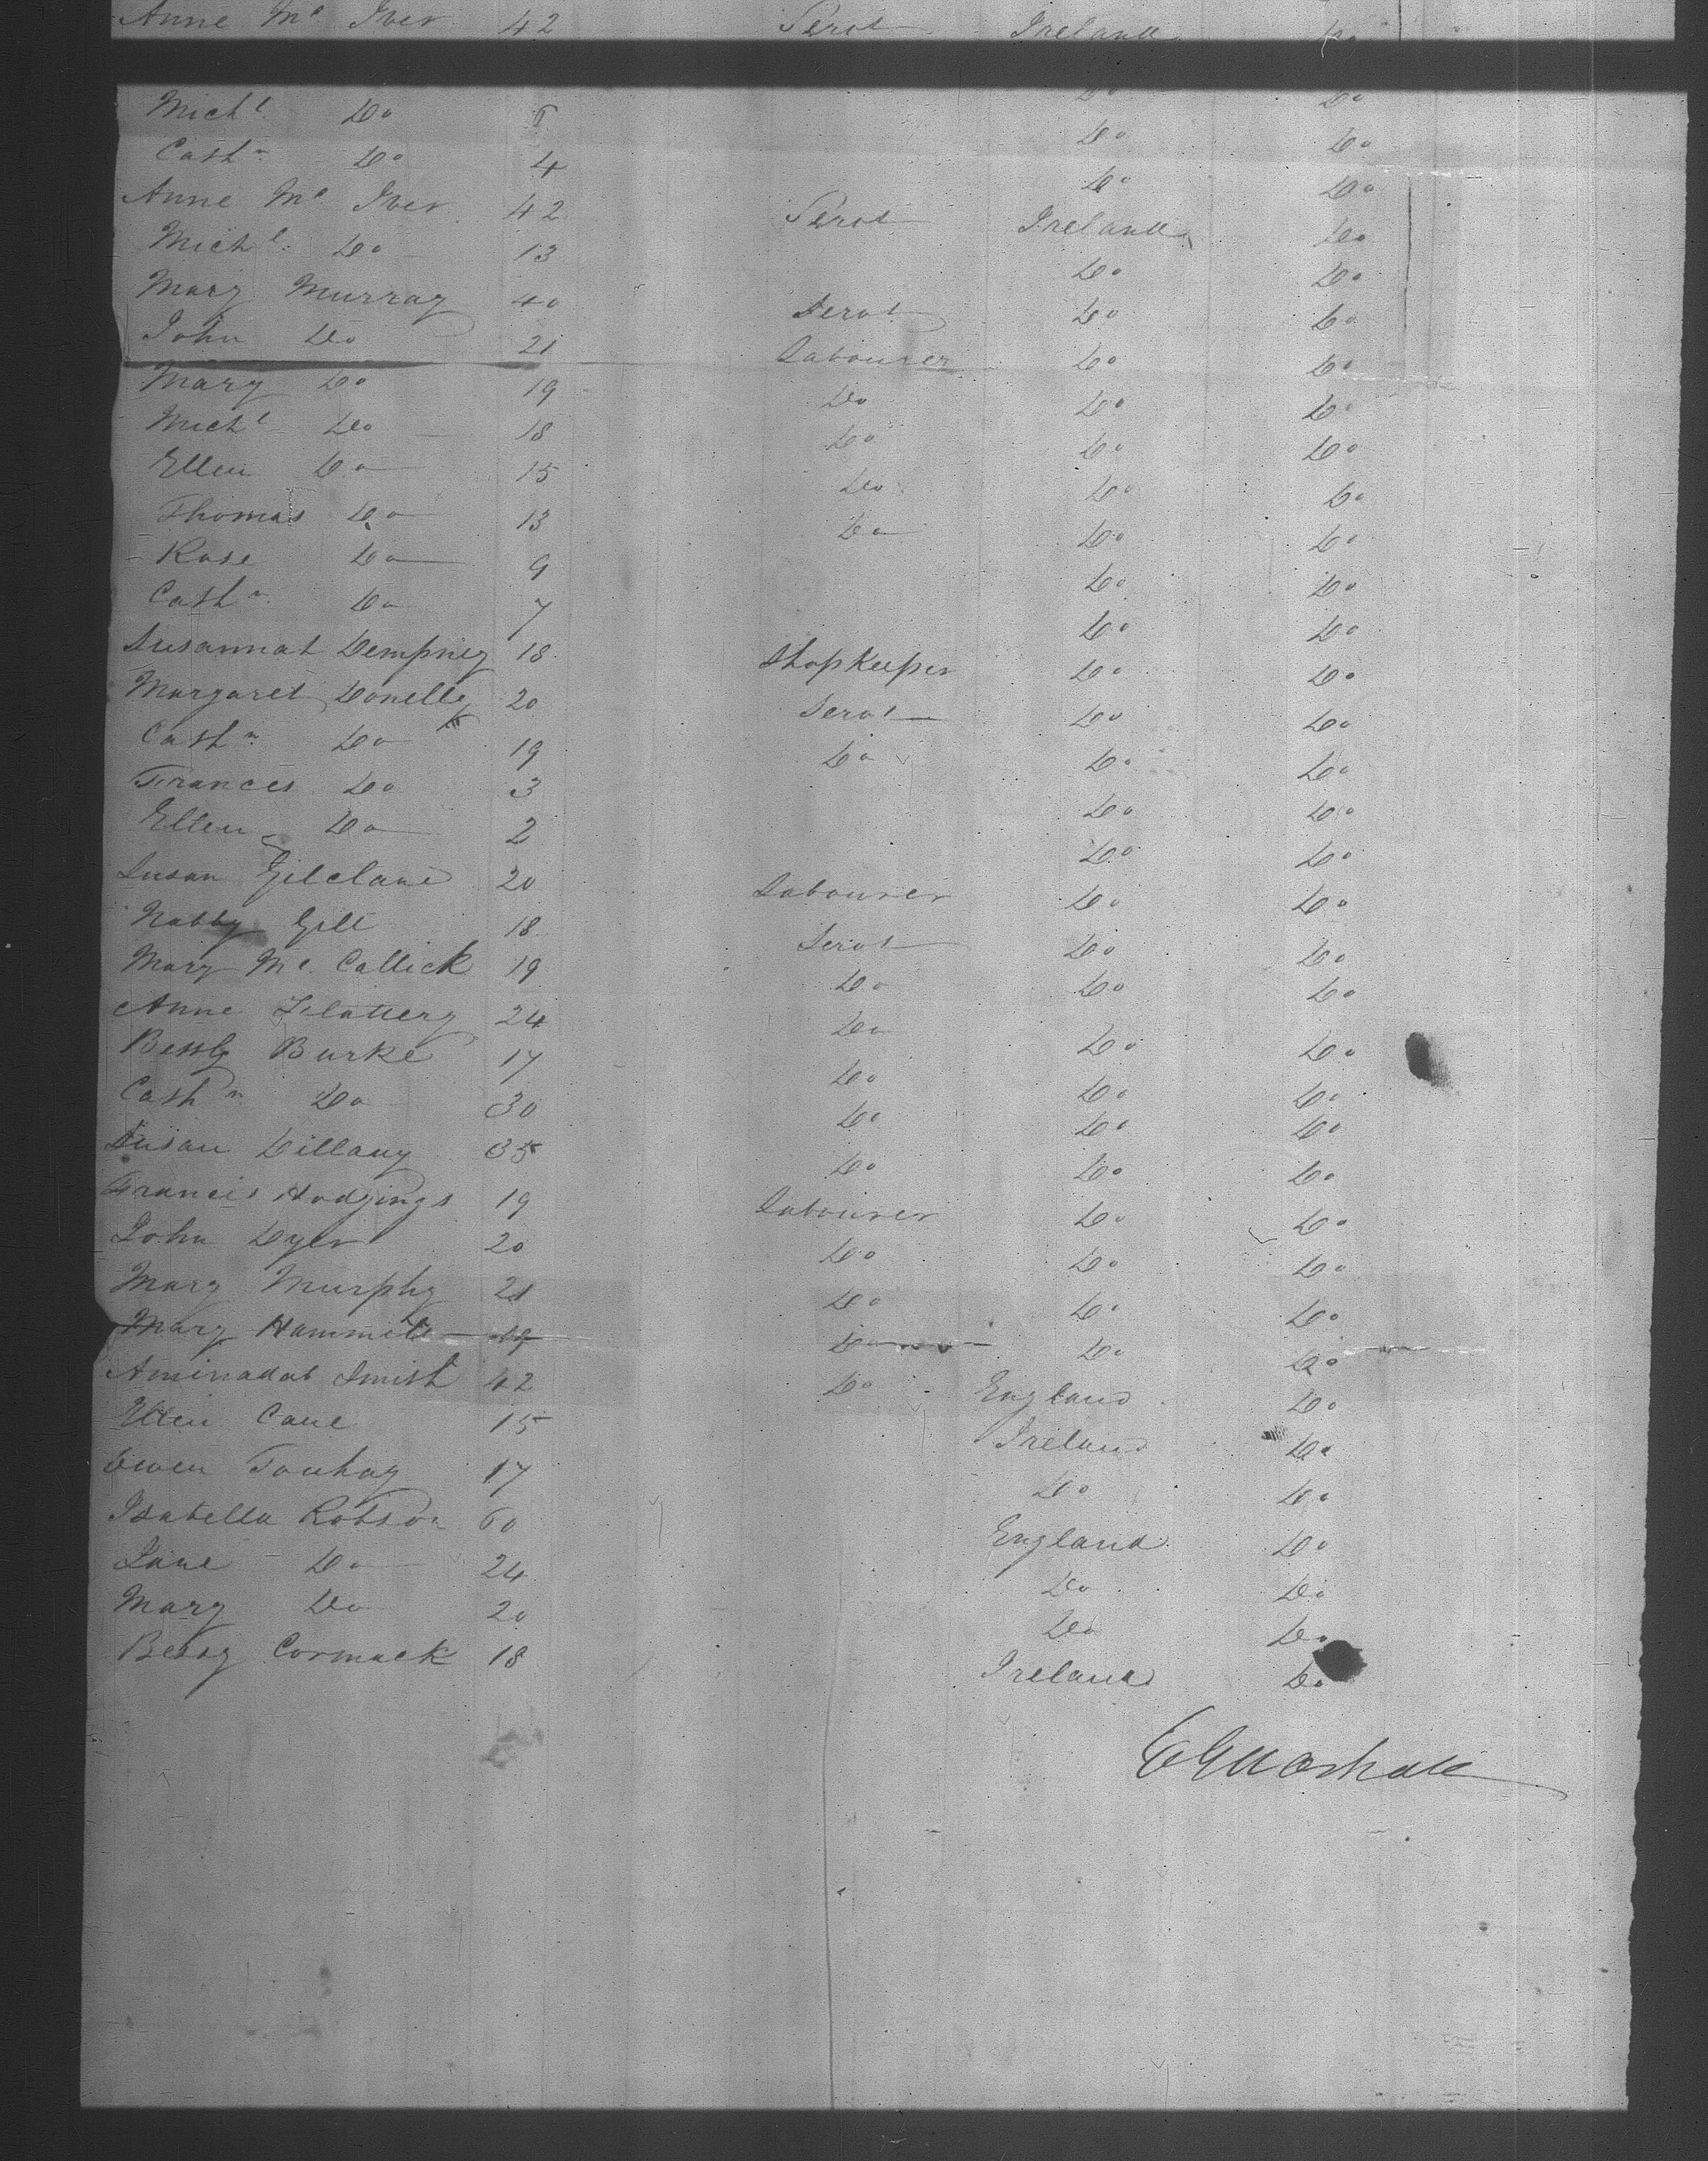 Anne Mc Iver 42 Servt Ireland Do
Do Do
Michl Do 6 Do Do
Cathn Do 4 Do Do
Anne Mc Iver 42 Servt Ireland Do
Michl Do 13 Do Do
Mary Murray 40 Servt Do Do
John Do 21 Labourer Do Do
Mary Do 19 Do Do Do
Michl Do 18 Do Do Do
Ellen Do 15 Do Do Do
Thomas Do 13 Do Do Do
Rose Do 9 Do Do
Cathn Do 7 Do Do
Susannah Dempsey 18 Shopkeeper Do Do
Margaret Donelly 20 Servt Do Do
Cathn Do 19 Do Do Do
Frances Do 3 Do Do
Ellen Do 2 Do Do
Susan Gilclane 20 Labourer Do Do
Nabby Gill 18 Servt Do Do
Mary Mc Callick 19 Do Do Do
Anne Flattery 24 Do Do Do
Bessy Burke 17 Do Do Do
Cathn Do 30 Do Do Do
Susan Dillany 35 Do Do Do
Francis Hodgings 19 Labourer Do Do
John Dyer 20 Do Do Do
Mary Murphy 21 Do Do Do
Mary Hammill 19 Do Do Do
Aminadab Smith 42 Do England Do
Ellen Cane 15 Ireland Do
Owen Touhay 17 Do Do
Isabella Robson 60 England Do
Jane Do 24 Do Do
Mary Do 20 Do Do
Bessy Cormack 18 Ireland Do